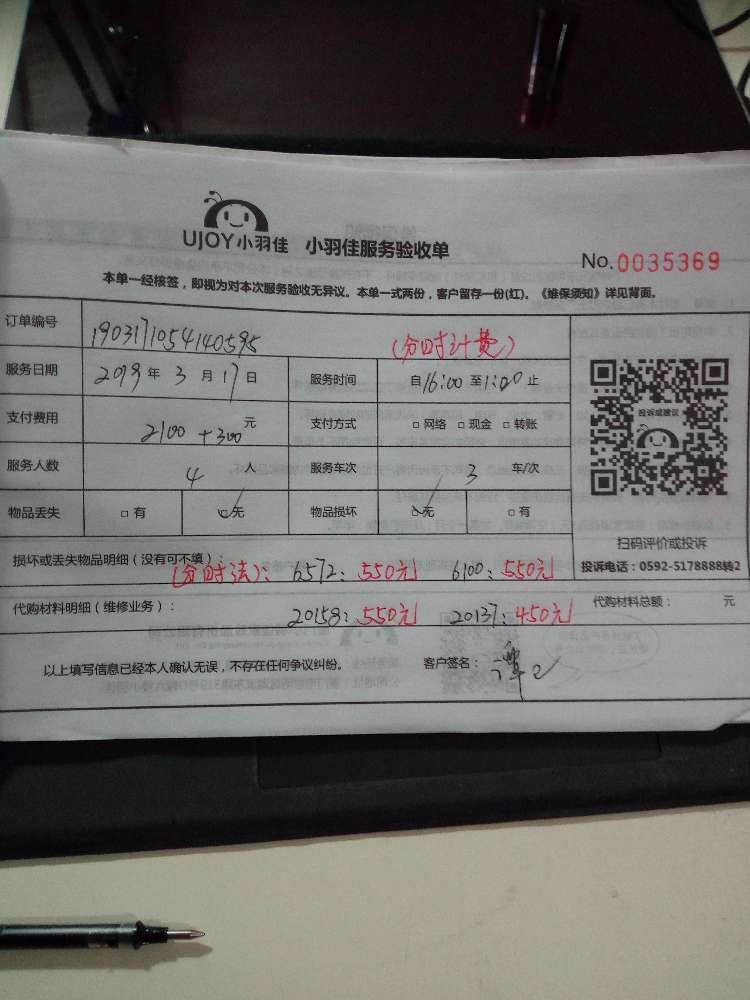 UJOY小羽佳 小羽佳服务验收单
No.0035369
本单一经核签，即视为对本次服务验收无异议。本单一式两份，客户留存一份(红)。《维保须知》详见背面。
订单编号 1903171054140595 (分时计费)
服务日期 2019年3月17日 服务时间 自16:00至1:00止
投诉或建议
支付费用 2100+300元 支付方式 □网络 □现金 □转账
服务人数 4人 服务车次 3车/次
物品丢失 □有 ☑无 物品损坏 ☑无 □有
扫码评价或投诉
投诉电话：0592-5178888转2
损坏或丢失物品明细（没有可不填）：
(分时法)： 6572：550元 6100：550元
代购材料明细（维修业务）： 20158：550元 20137：450元 代购材料总额： 元
以上填写信息已经本人确认无误，不存在任何争议纠纷。 客户签名：